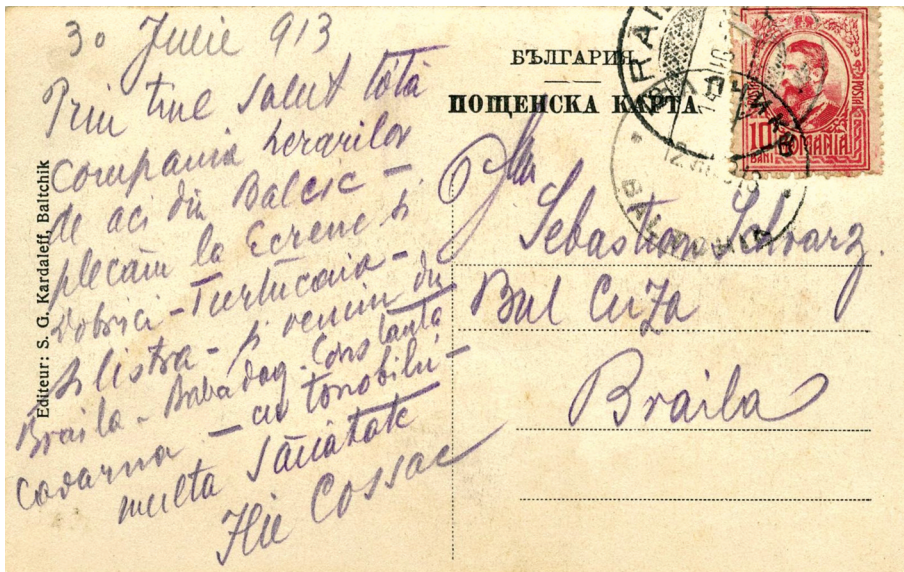 30 Julie 913
Prin tine salut tótă
compania herarilor
de aci din Balcic –
plecăm la Ecrene și
Dobrici - Turtucaia -
Silistra - și venim din
Braila - Babadag - Constanța
Cavarna – cu tonobilu –
multa sănătate
Ilie Cossac
Editeur : S. G. Kardaleff, Baltchik
БЪЛГАРИЯ
ПОЩЕНСКА КАРТА
Sebastian Schvarz
Bul Cuza
Braila
10
BANI
ROMANIA